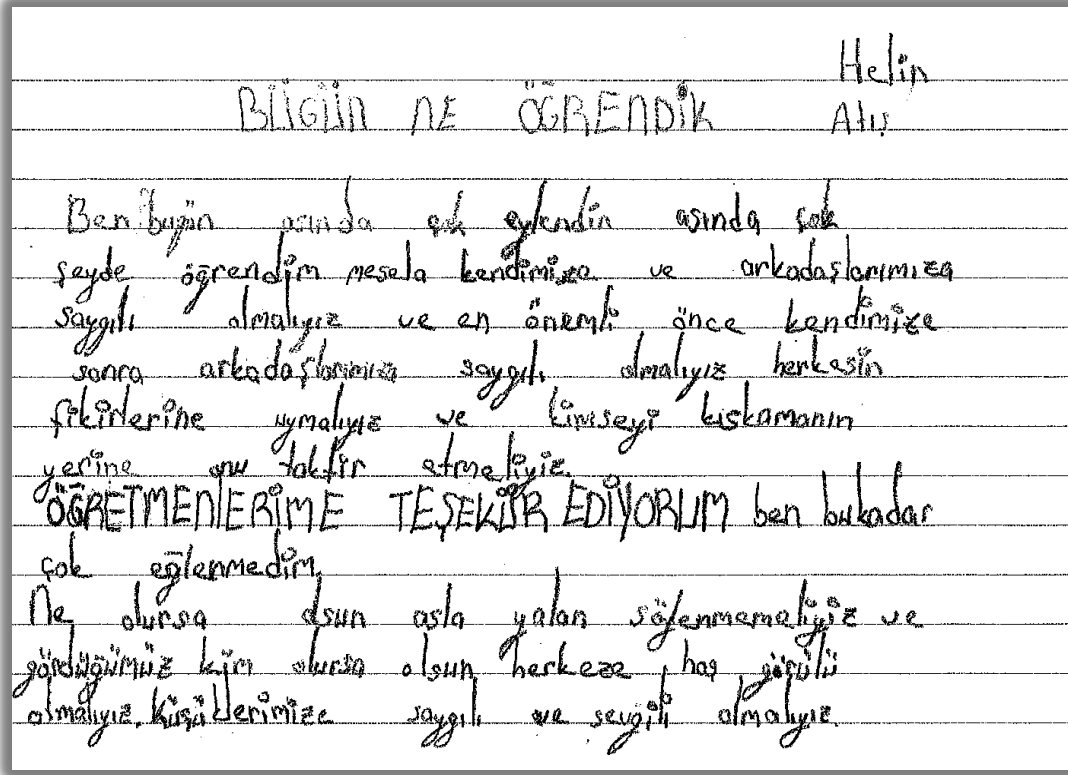 Helin
BÜGÜN NE ÖĞRENDİK Atış
Ben bugün asında çok eylendin asında çok
şeyde öğrendim mesela kendimize ve arkadaşlarımıza
saygılı olmalıyız ve en önemli önce kendimize
sonra arkadaşlarımıza saygılı olmalıyız herkesin
fikirlerine uymalıyız ve kimseyi kıskamanın
yerine onu taktir etmeliyiz.
ÖĞRETMENLERİME TEŞEKÜR EDİYORUM ben bukadar
çok eğlenmedim.
Ne olursa olsun asla yalan söylenmemeliyiz ve
gördüğümüz kim olursa olsun herkeze hoş görülü
olmalıyız. küçüklerimize saygılı ve sevgili olmalıyız.